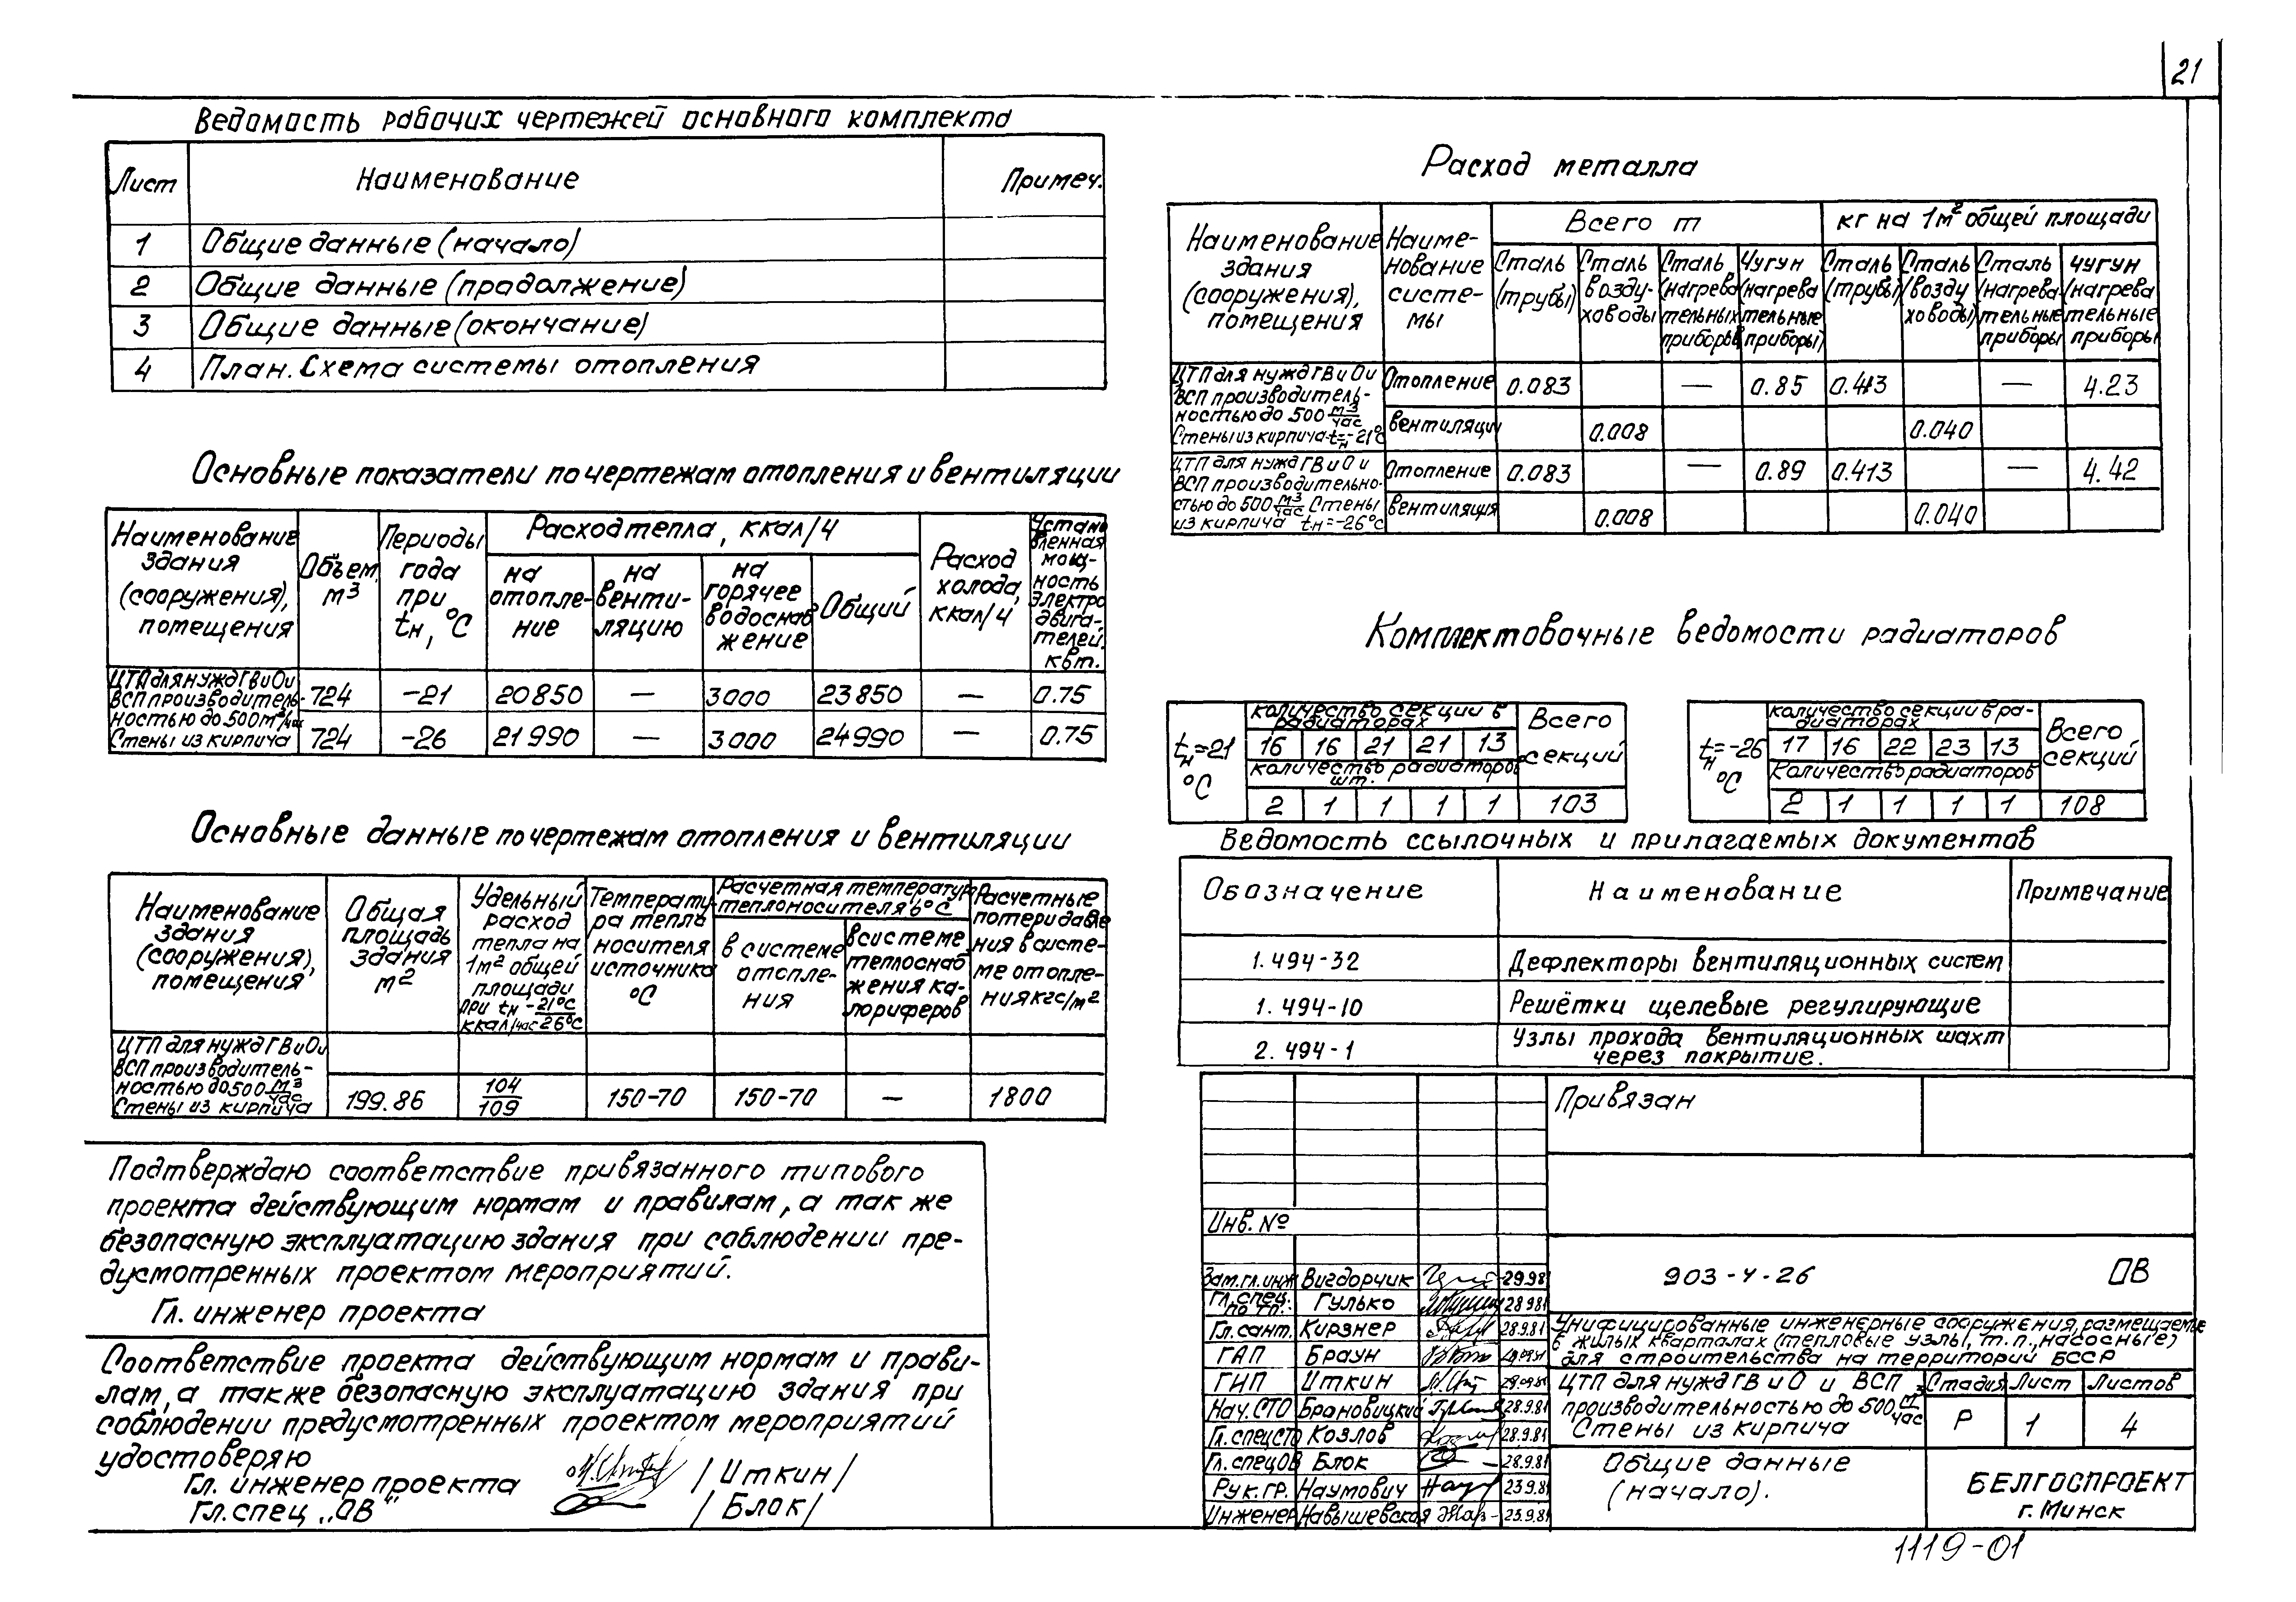 21
Ведомость рабочих чертежей основного комплекта
Лист Наименование Примеч.
1 Общие данные (начало)
2 Общие данные (продолжение)
3 Общие данные (окончание)
4 План. Схема системы отопления
Основные показатели по чертежам отопления и вентиляции
Наименование здания (сооружения), помещения
Объем м³
Периоды года при tн, °С
Расход тепла, ккал/ч
на отопление
на вентиляцию
на горячее водоснабжение
Общий
Расход холода, ккал/ч
Установленная мощность электродвигателей, квт.
ЦТП для нужд ГВ и О и ВСП производительностью до 500 м³/час Стены из кирпича
724 -21 20850 — 3000 23850 — 0.75
724 -26 21990 — 3000 24990 — 0.75
Основные данные по чертежам отопления и вентиляции
Наименование здания (сооружения), помещения
Общая площадь здания м²
Удельный расход тепла на 1м² общей площади при tн -21°С/26°С ккал/час
Температура тепла носителя источника °С
Расчетная температура теплоносителя в °С
в системе отопления
в системе теплоснабжения калориферов
Расчетные потери давления в системе отопления кгс/м²
ЦТП для нужд ГВ и О и
ВСП производитель-
ностью до 500 м³/час
Стены из кирпича
199.86 104/109 150-70 150-70 — 1800
Подтверждаю соответствие привязанного типового
проекта действующим нормам и правилам, а так же
безопасную эксплуатацию здания при соблюдении пре-
дусмотренных проектом мероприятий.
Гл. инженер проекта
Соответствие проекта действующим нормам и прави-
лам, а также безопасную эксплуатацию здания при
соблюдении предусмотренных проектом мероприятий
удостоверяю
Гл. инженер проекта /Иткин/
Гл. спец „ОВ“ /Блок/
Расход металла
Наименование здания (сооружения), помещения
Наименование системы
Всего т
кг на 1м² общей площади
Сталь (трубы)
Сталь воздуховоды
Сталь (нагревательных приборов
Чугун (нагревательные приборы)
Сталь (трубы)
Сталь (воздуховоды)
Сталь (нагревательные приборы
Чугун (нагревательные приборы
ЦТП для нужд ГВ и О и
ВСП производитель-
ностью до 500 м³/час
Стены из кирпича tн=-21°С
Отопление 0.083 — 0.85 0.413 — 4.23
вентиляции 0.008 0.040
ЦТП для нужд ГВ и О и
ВСП производительно-
стью до 500 м³/час Стены
из кирпича tн=-26°С
Отопление 0.083 — 0.89 0.413 — 4.42
вентиляция 0.008 0.040
Комплектовочные ведомости радиаторов
tн=-21 °С
количество секции в радиаторах
16 16 21 21 13
количество радиаторов шт.
2 1 1 1 1
Всего секций
103
tн=-26 °С
количество секции в радиаторах
17 16 22 23 13
Количество радиаторов
2 1 1 1 1
Всего секций
108
Ведомость ссылочных и прилагаемых документов
Обозначение Наименование Примечание
1.494-32 Дефлекторы вентиляционных систем
1.494-10 Решётки щелевые регулирующие
2.494-1 Узлы прохода вентиляционных шахт
через покрытие.
Привязан
Инв. №
Зам.гл.инж Вигдорчик 29.9.81
Гл.спец. по тп. Гулько 28.9.81
Гл.сант. Кирзнер 28.9.81
ГАП Браун
ГИП Иткин 28.09.81
Нач.СТО Брановицкий 28.9.81
Гл.спецСТО Козлов 28.9.81
Гл.спецОВ Блок 28.9.81
Рук.гр. Наумович 23.9.81
Инженер Навышевская 23.9.81
903-4-26 ОВ
Унифицированные инженерные сооружения, размещаемые
в жилых кварталах (тепловые узлы, т.п., насосные)
для строительства на территорий БССР
ЦТП для нужд ГВ и О и ВСП
производительностью до 500 м³/час
Стены из кирпича
Стадия Лист Листов
Р 1 4
Общие данные
(начало).
БЕЛГОСПРОЕКТ
г. Минск
1119-01